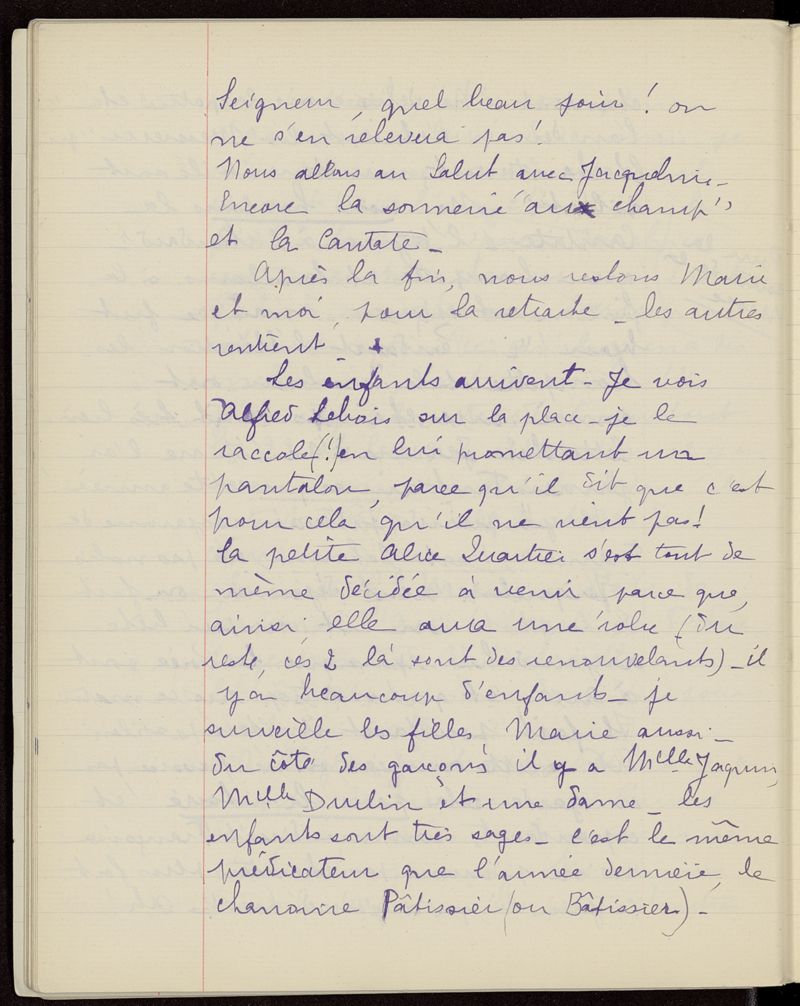 Seigneur, quel beau soir ! on
ne s'en relèvera pas !
Nous allons au Salut avec Jacqueline _
Encore la sonnerie "aux champ"
et la Cantate _
Après la fin, nous restons Marie
et moi, pour la retraite _ les autres
rentrent _
Les enfants arrivent _ Je vois
Alfred Lebois sur la place _ je le
raccole (!) en lui promettant un
pantalon, parce qu'il dit que c'est
pour cela qu'il ne vient pas !
la petite Alice s'est tout de
même décidée à venir parce que,
ainsi, elle aura une robe (du
reste, ces 2 là sont des renouvelants) _ il
y a beaucoup d'enfants _ je
surveille les filles, Marie aussi _
du côté des garçons il y a Melle Jaquin,
Melle Drulin et une dame _ les
enfants sont très sages _ c'est le même
prédicateur que l'année dernière, le
chanoine Pâtissier (ou Bâtissier) _